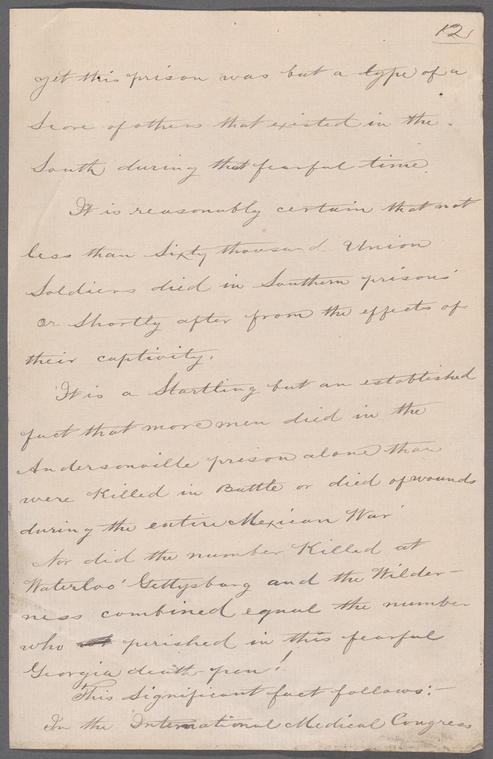 12
yet this prison was but a type of a
Score of others that existed in the
South during that fearful time.
It is reasonably certain that not
less than Sixty thousand Union
Soldiers died in Southern prisons
or Shortly after from the effects of
their captivity.
It is a Startling but an established
fact that more men died in the
Andersonville prison alone than
were Killed in Battle or died of wounds
during the entire Mexican War
Nor did the number Killed at
Waterloo Gettysburg and the Wilder-
ness combined equal the number
who perished in this fearful
Georgia death-pen!
This Significant fact follows:-
In the International Medical Congress